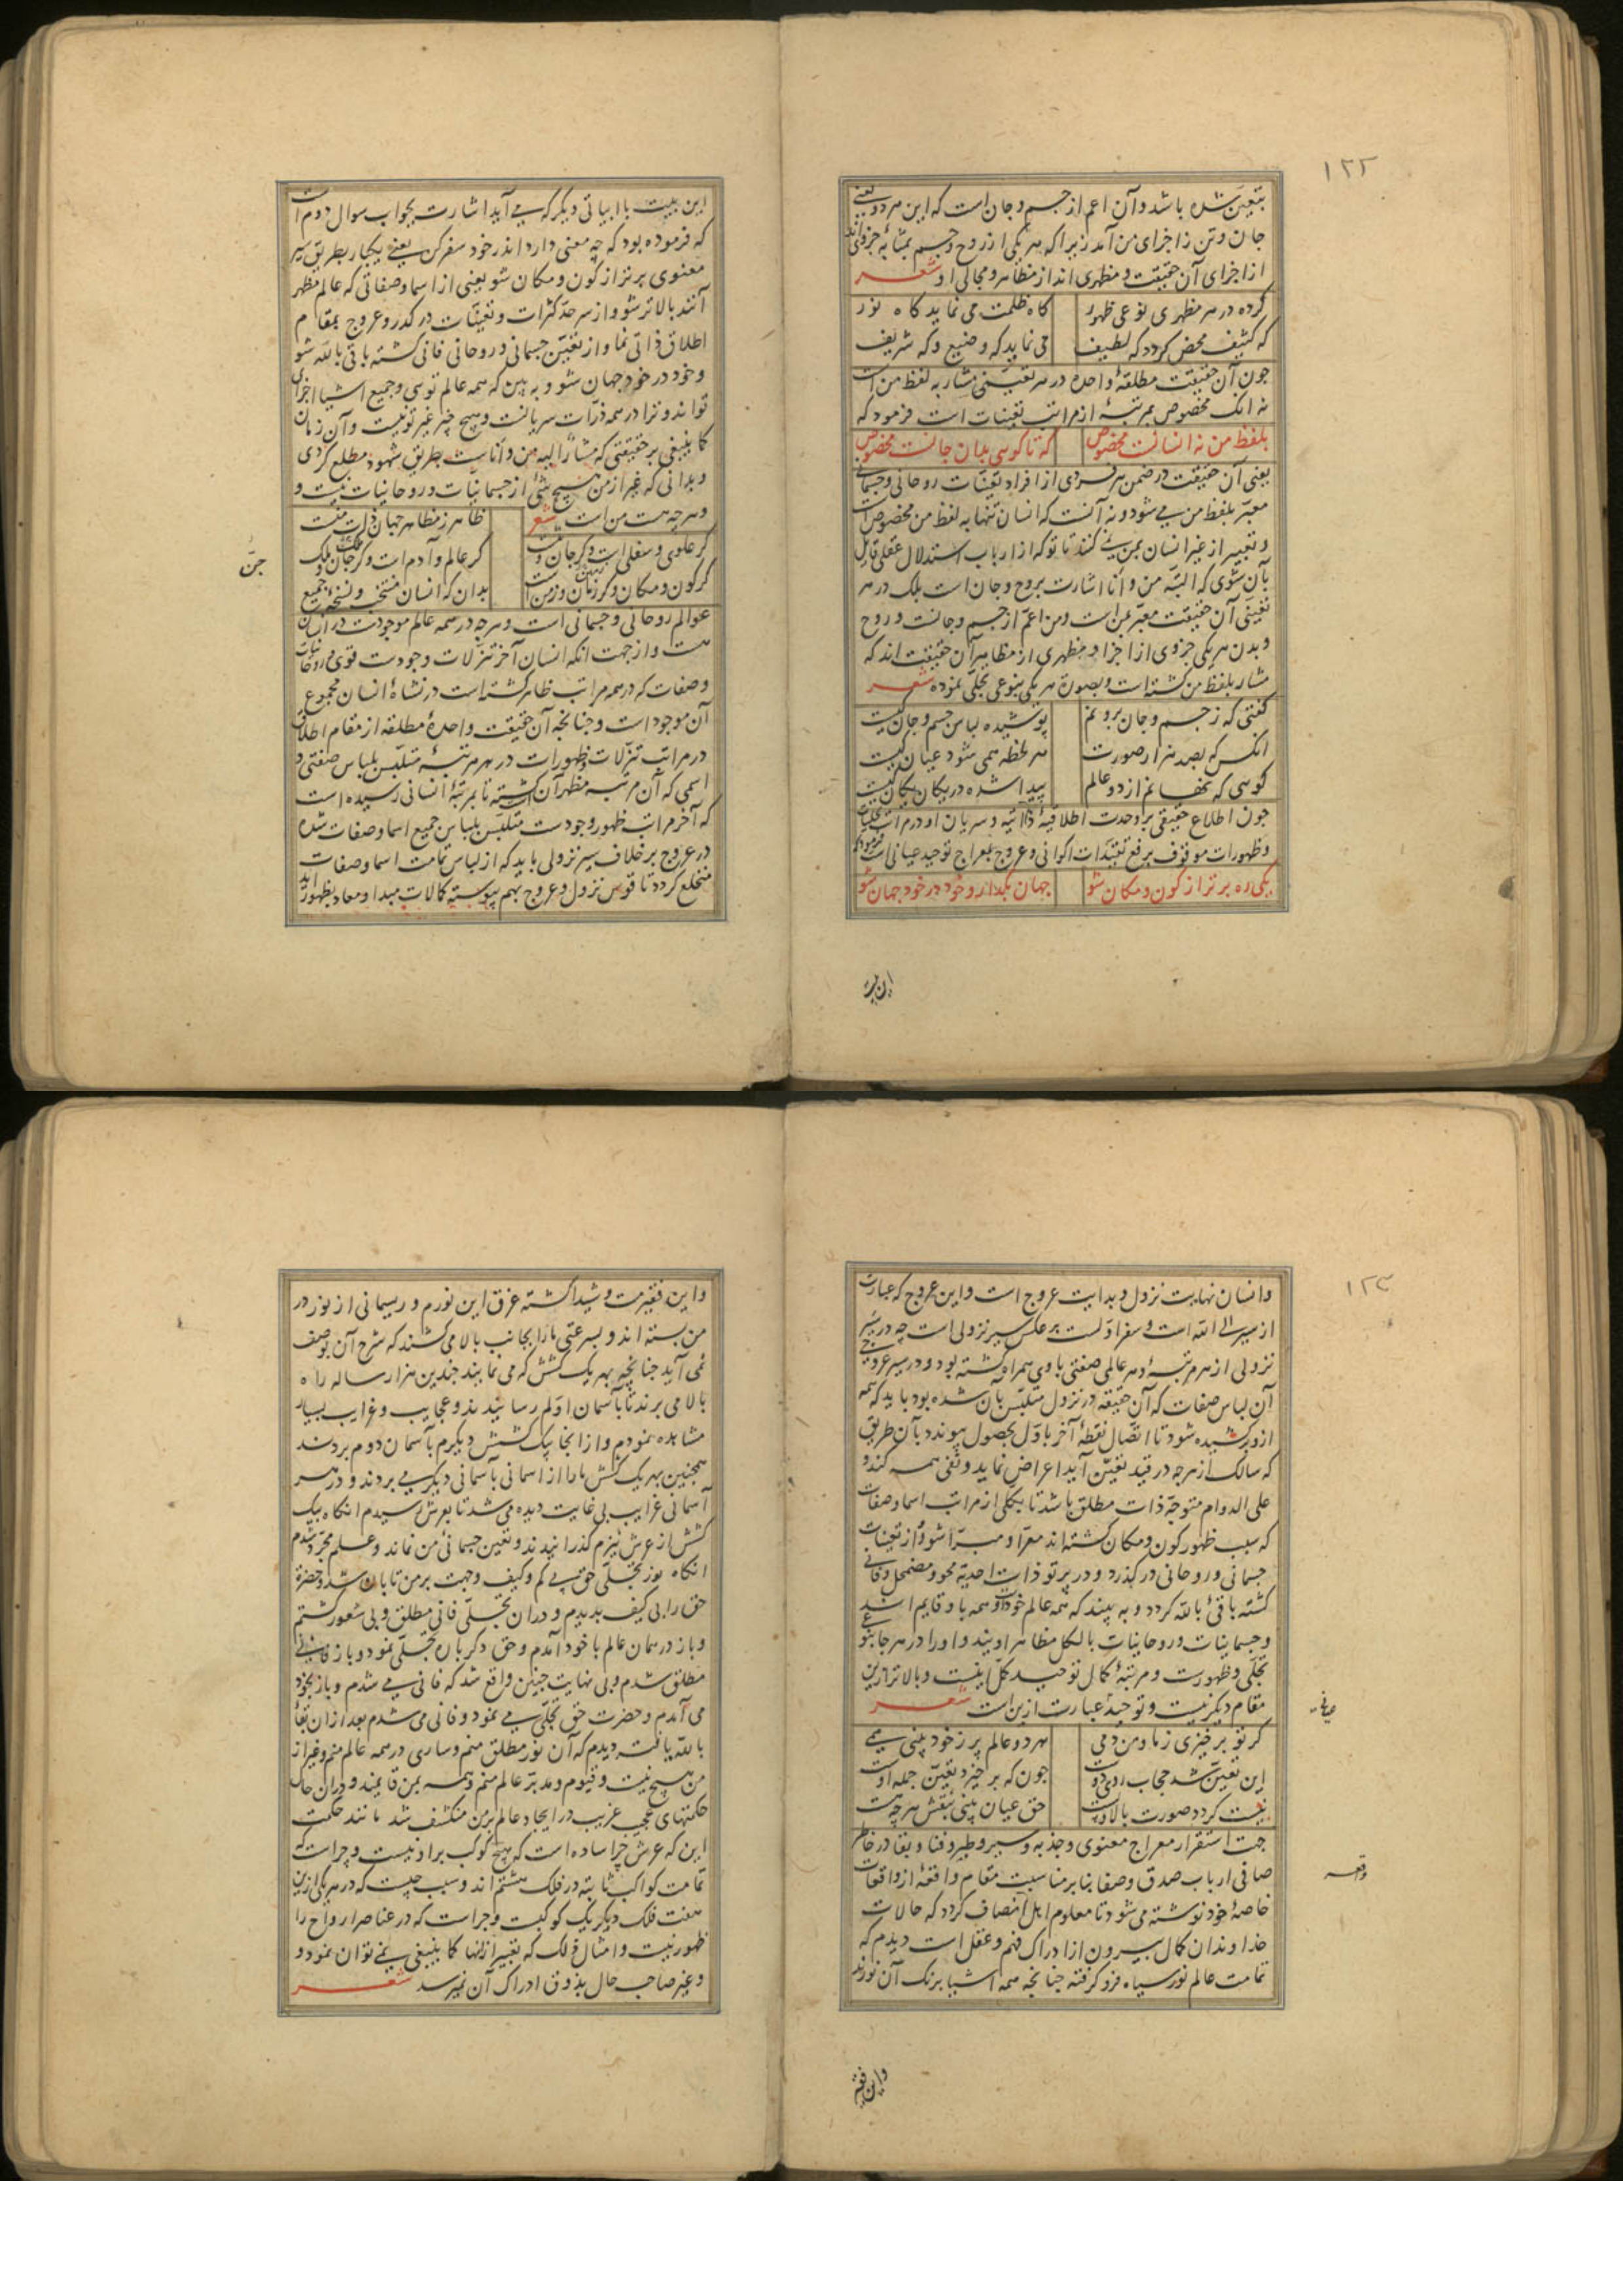 ۱۲۲
بتعین شده باشد و آن اعم از جسم و جان است که این هر دو یعنی
جان و تن ز اجزای من آمد زیرا که هر یکی از روح و جسم بمثابه جزوی‌اند
از اجزای آن حقیقت و مظهری اند از مظاهر و مجالی او شعر
کرده در هر مظهری نوعی ظهور کاه ظلمت می نماید کاه نور
که کثیف محض کردد که لطیف می نماید که وضیع و که شریف
جون آن حقیقت مطلقهٔ واحده در هر تعینی مشار به لفظ من است
نه انک مخصوص بمرتبهٔ از مراتب تعینات است فرمود که
بلفظ من نه انسانست مخصوص که تا کویی بدان جانست مخصوص
یعنی آن حقیقت در ضمن هر فردی از افراد تعینات روحانی و جسمانی
معبر بلفظ من می شود و نه آنست که انسان تنها به لفظ من مخصوص است
و تعبیر از غیر انسان بمن نمی کنند تا تو که از ارباب استدلال عقلی قایل
بآن شوی که البته من و أنا اشارت بروح و جان است بلک در هر
تعینی آن حقیقت معبر بمن است و من اعم از جسم و جانست و روح
و بدن هر یکی جزوی از اجزا و مظهری از مظاهر آن حقیقت اند که
مشار بلفظ من کشته است و بصورت هر یکی بنوعی تجلی نموده شعر
کفتی که ز جسم و جان برونم پوشیده لباس جسم و جان کیست
انکس که بصد هزار صورت هر لحظه همی شود عیان کیست
کویی که نهانم از دو عالم پیدا شده در یکان یکان کیست
جون اطلاع حقیقی بر وحدت اطلاقیهٔ ذاتیه و سریان او در مراتب تجلیات
و ظهورات موقوف برفع تقیدات اکوانی و عروج بمعراج توحید عیانی است فرمود که
یکی ره برتر از کون و مکان شو جهان بکذار و خود در خود جهان شو
این بیت
این بیت با ابیاتی دیکر که می آید اشارت بجواب سوال دوم است
که فرموده بود که چه معنی دارد اندر خود سفر کن یعنی یکبار بطریق سیر
معنوی برتر از کون و مکان شو یعنی از اسما و صفاتی که عالم مظهر
آنند بالاتر شو و از سرحد کثرات و تعینات در کذر و عروج بمقام
اطلاق ذاتی نما و از تعین جسمانی و روحانی فانی کشته باقی بالله شو
و خود در خود جهان شو و به بین که همه عالم تویی و جمیع اشیا اجزای
تواند و ترا در همه ذرات سریانست و هیچ چیز غیر تو نیست و آن زمان
کما ینبغی بر حقیقتی که مشار الیه من و أناست بطریق شهود مطلع کردی
و بدانی که غیر از من هیچ شئ از جسمانیات و روحانیات نیست و
و هرچه هست من است شعر ظاهر ز مظاهر جهان ذات منست
کر علوی و سفلی است و کر جان و تنست کر عالم و آدم است و کر جان و ملک
کر کون و مکان و کر زمان و زمن است بدان که انسان منتخب و نسخهٔ جمیع
جن
عوالم روحانی و جسمانی است و هرچه در همه عالم موجودست در انسان
هست و از جهت انکه انسان آخر تنزلات وجودست قوی و روحانیات
و صفات که در همه مراتب ظاهر کشته است در نشاهٔ انسان مجموع
آن موجود است و جنانجه آن حقیقت واحدهٔ مطلقه از مقام اطلاق
در مراتب تنزلات و ظهورات در هر مرتبهٔ متلبس بلباس صفتی و
اسمی که آن مرتبه مظهر آن کشته تا بمرتبهٔ انسانی رسیده است
که آخر مراتب ظهور وجودست متلبس بلباس جمیع اسما و صفات شده
در عروج برخلاف سیر نزولی باید که از لباس تمامت اسما و صفات
منخلع کردد تا قوس نزول و عروج بهم پیوسته کمالات مبدا و معاد بظهور آید
۱۲۳
و انسان نهایت نزول و بدایت عروج است و این عروج که عبارت
از سیر الی الله است و سفر اولست برعکس سیر نزولی است چه در سیر
نزولی از هر مرتبه و هر عالمی صفتی با وی همراه کشته بود و در سیر عروجی
آن لباس صفات که آن حقیقة در نزول متلبس بآن شده بود باید که همه
ازو برکشیده شود تا اتصال نقطهٔ آخر باول بحصول پیوندد بآن طریق
که سالک از هرجه در قید تعین آید اعراض نماید و نفی همه کند و
علی الدوام متوجه ذات مطلق باشد تا بکلی از مراتب اسما و صفات
که سبب ظهور کون و مکان کشته اند معرا و مبرا شود و از تعینات
جسمانی و روحانی در کذرد و در پرتو ذات احدیه محو و مضمحل و فانی
کشته باقئ بالله کردد و به بیند که همه عالم خود اوست و همه باو قایم اند
و جسمانیات و روحانیات بالکل مظاهر اویند و او را در هر جا بنوعی
تجلی و ظهورست و مرتبهٔ کمال توحید کمل اینست و بالاتر ازین
مقام دیکر نیست و توحید عبارت ازین است شعر
عیانی
کر تو برخیزی ز ما و من دمی هر دو عالم پر ز خود بینی همی
این تعین شد حجاب روی دوست جون که برخیزد تعین جمله اوست
نیست کردد صورت بالا و پست حق عیان بینی بنقش هر چه هست
جهت استقرار معراج معنوی و جذبه و سیر و طیر و فنا و بقا در خاطر
صافی ارباب صدق و صفا بنابر مناسبت مقام واقعهٔ از واقعات
واقعه
خاصهٔ خود نوشته می شود تا معلوم اهل انصاف کردد که حالات
خداوندان کمال بیرون از ادراک فهم و عقل است دیدم که
تمامت عالم نور سیاه فرو کرفته جنانجه همه اشیا برنک آن نورند
و این فقیر
و این فقیر مست و شیدا کشته غرق این نورم و ریسمانی از نور در
من بسته اند و بسرعتی مرا بجانب بالا می کشند که شرح آن بوصف
نمی آید جنانچه بهر یک کشش که می نمایند جندین هزار ساله راه
بالا می برند تا بآسمان اولم رسانیدند و عجایب و غرایب بسیار
مشاهده نمودم و از انجا بیک کشش دیکرم بآسمان دوم بردند
همچنین بهر یک کشش مرا از اسمانی بآسمانی دیکر می بردند و در هر
آسمانی غرایب بی غایت دیده می شد تا بعرش رسیدم انکاه بیک
کشش از عرش نیزم کذرانیدند و تعین جسمانئ من نماند و علم مجرد شدم
انکاه نور تجلی حق بی کم و کیف و جهت بر من تابان شد و حضرة
حق را بی کیف بدیدم و در ان تجلی فانی مطلق و بی شعور کشتم
و باز در همان عالم با خود آمدم و حق دکر باره تجلی نمود و باز فانی
مطلق شدم و بی نهایت جنین واقع شد که فانی می شدم و باز بخود
می آمدم و حضرت حق تجلی می نمود و فانی می شدم بعد از ان بقأ
بالله یافته دیدم که آن نور مطلق منم و ساری در همه عالم منم و غیر از
من هیچ نیست و قیوم و مدبر عالم منم و همه بمن قایمند و در ان حال
حکمتهای عجیب غریب در ایجاد عالم بر من منکشف شد مانند حکمت
این که عرش چرا ساده است که هیچ کوکب برا و نیست و چراست که
تمامت کواکب ثابته در فلک هشتم اند و سبب چیست که در هر یکی ازین
هفت فلک دیکر یک کوکبست و چراست که در عناصر ارواح را
ظهور نیست و امثال ذلک که تعبیر از انها کما ینبغی نمی توان نمود و
و غیر صاحب حال بذوق ادراک آن نمیرسد شعر